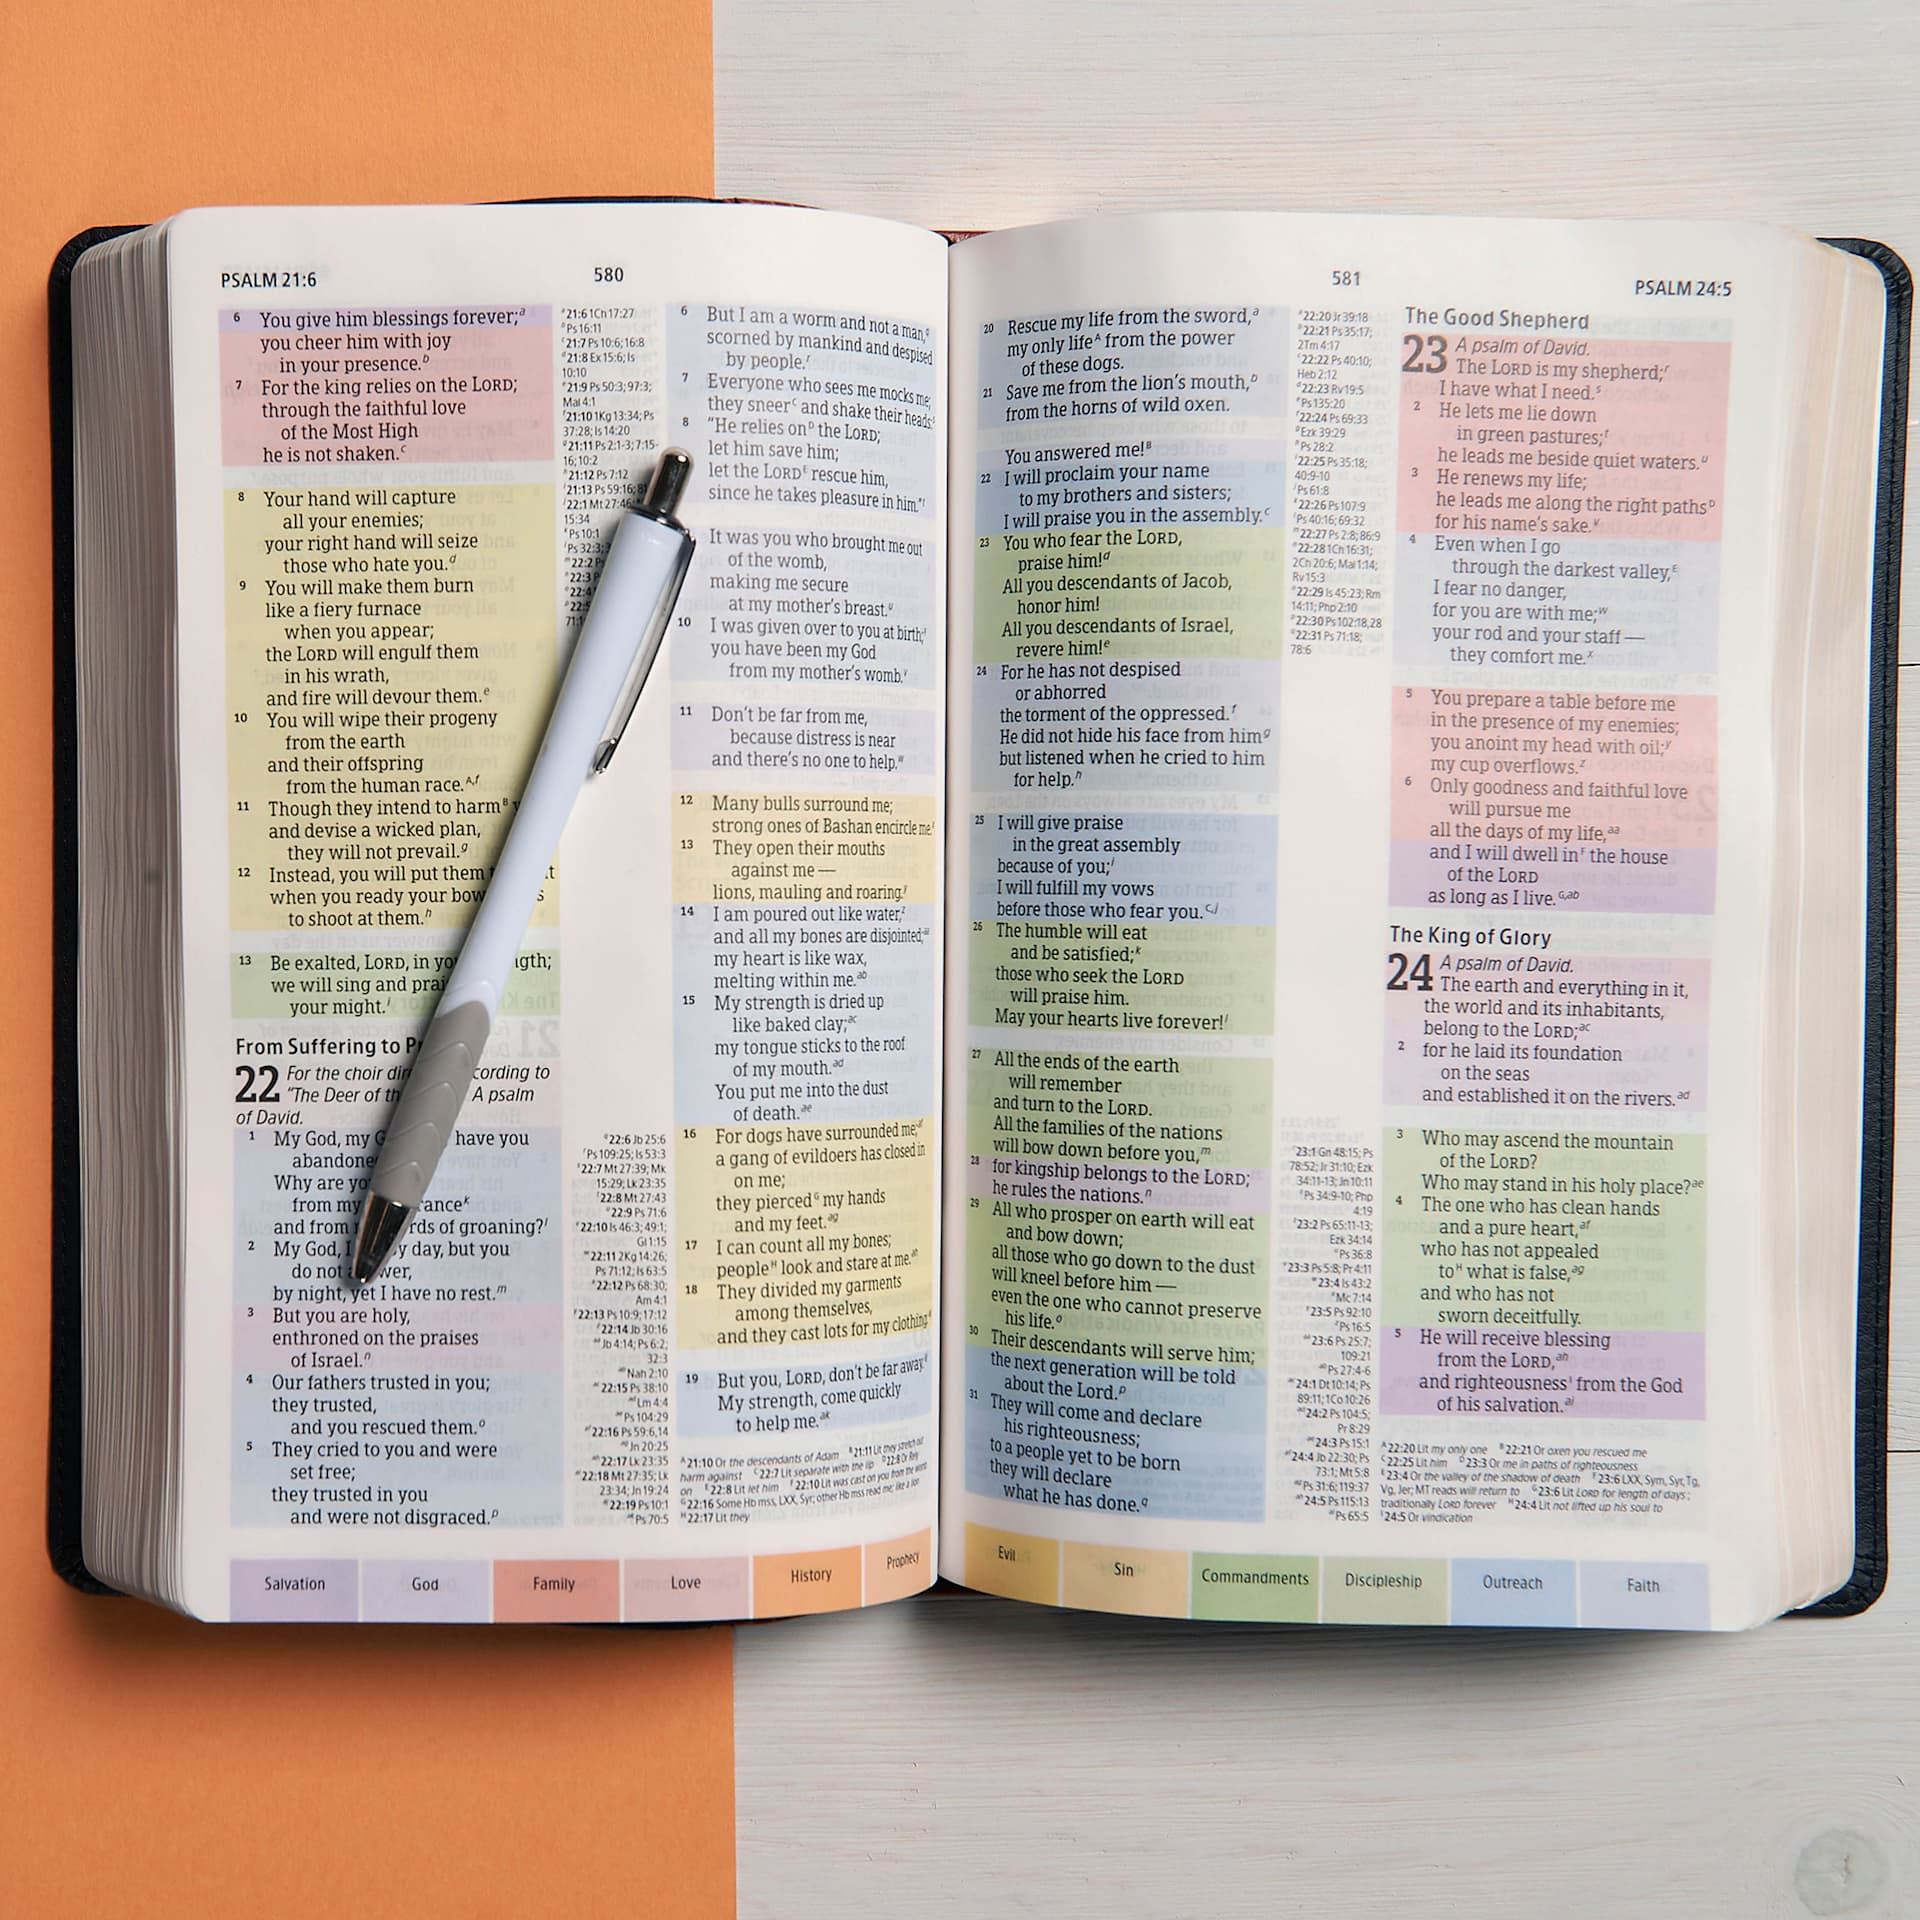 PSALM 21:6
580
6 You give him blessings forever;a
you cheer him with joy
in your presence.b
7 For the king relies on the LORD;
through the faithful love
of the Most High
he is not shaken.c
8 Your hand will capture
all your enemies;
your right hand will seize
those who hate you.d
9 You will make them burn
like a fiery furnace
when you appear;
the LORD will engulf them
in his wrath,
and fire will devour them.e
10 You will wipe their progeny
from the earth
and their offspring
from the human race.A,f
11 Though they intend to harmB
and devise a wicked plan,
they will not prevail.g
12 Instead, you will put them
when you ready your
to shoot at them.h
13 Be exalted, LORD, in
we will sing and
your might.i
From Suffering to
22 For the choir cording to
"The Deer of A psalm
of David.
1 My God, my have you
Why are
from my
and from of groaning?l
2 My God, I day, but you
do not
by night, yet I have no rest.m
3 But you are holy,
enthroned on the praises
of Israel.n
4 Our fathers trusted in you;
they trusted,
and you rescued them.o
5 They cried to you and were
set free;
they trusted in you
and were not disgraced.p
a21:6 1Ch 17:27
b Ps 16:11
c21:7 Ps 10:6; 16:8
d21:8 Ex 15:6; Is
10:10
e21:9 Ps 50:3; 97:3;
Mal 4:1
f21:10 1Kg 13:34; Ps
37:28; Is 14:20
g21:11 Ps 2:1-3; 7:15-
16; 10:2
h21:12 Ps 7:12
i21:13 Ps 59:16;
22:1 Mt 27:46;
15:34
Ps 10:1
Ps 32:3;
q22:6 Jb 25:6
r Ps 109:25; Is 53:3
s22:7 Mt 27:39; Mk
15:29; Lk 23:35
t22:8 Mt 27:43
u22:9 Ps 71:6
v22:10 Is 46:3; 49:1;
Gl 1:15
w22:11 2Kg 14:26;
Ps 71:12; Is 63:5
x22:12 Ps 68:30;
Am 4:1
y22:13 Ps 10:9; 17:12
z22:14 Jb 30:16
aa Jb 4:14; Ps 6:2;
32:3
ab Nah 2:10
ac22:15 Ps 38:10
ad Lm 4:4
ae Ps 104:29
af22:16 Ps 59:6,14
ag Jn 20:25
ah22:17 Lk 23:35
ai22:18 Mt 27:35; Lk
23:34; Jn 19:24
aj22:19 Ps 10:1
ak Ps 70:5
6 But I am a worm and not a man,q
scorned by mankind and despised
by people.r
7 Everyone who sees me mocks me;
they sneerC and shake their heads:s
8 "He relies onD the LORD;
let him save him;
let the LORDE rescue him,
since he takes pleasure in him."t
It was you who brought me out
of the womb,
making me secure
at my mother's breast.u
10 I was given over to you at birth;F
you have been my God
from my mother's womb.v
11 Don't be far from me,
because distress is near
and there's no one to help.w
12 Many bulls surround me;
strong ones of Bashan encircle me.x
13 They open their mouths
against me —
lions, mauling and roaring.y
14 I am poured out like water,z
and all my bones are disjointed;aa
my heart is like wax,
melting within me.ab
15 My strength is dried up
like baked clay;ac
my tongue sticks to the roof
of my mouth.ad
You put me into the dust
of death.ae
16 For dogs have surrounded me;af
a gang of evildoers has closed in
on me;
they piercedG my hands
and my feet.ag
17 I can count all my bones;
peopleH look and stare at me.ah
18 They divided my garments
among themselves,
and they cast lots for my clothing.ai
19 But you, LORD, don't be far away.aj
My strength, come quickly
to help me.ak
A21:10 Or the descendants of Adam B21:11 Lit they stretch out
harm against C22:7 Lit separate with the lip D22:8 Or Rely
on E22:8 Lit let him F22:10 Lit was cast on you from the womb
G22:16 Some Hb mss, LXX, Syr; other Hb mss read me; like a lion
H22:17 Lit they
Salvation
God
Family
Love
History
Prophecy
581
PSALM 24:5
20 Rescue my life from the sword,a
my only lifeA from the power
of these dogs.
21 Save me from the lion's mouth,b
from the horns of wild oxen.
You answered me!B
22 I will proclaim your name
to my brothers and sisters;
I will praise you in the assembly.c
23 You who fear the LORD,
praise him!d
All you descendants of Jacob,
honor him!
All you descendants of Israel,
revere him!e
24 For he has not despised
or abhorred
the torment of the oppressed.f
He did not hide his face from himg
but listened when he cried to him
for help.h
25 I will give praise
in the great assembly
because of you;i
I will fulfill my vows
before those who fear you.C,j
26 The humble will eat
and be satisfied;k
those who seek the LORD
will praise him.
May your hearts live forever!l
27 All the ends of the earth
will remember
and turn to the LORD.
All the families of the nations
will bow down before you,m
28 for kingship belongs to the LORD;
he rules the nations.n
29 All who prosper on earth will eat
and bow down;
all those who go down to the dust
will kneel before him —
even the one who cannot preserve
his life.o
30 Their descendants will serve him;
the next generation will be told
about the Lord.p
31 They will come and declare
his righteousness;
to a people yet to be born
they will declare
what he has done.q
a22:20 Jr 39:18
b22:21 Ps 35:17;
2Tm 4:17
c22:22 Ps 40:10;
Heb 2:12
d22:23 Rv 19:5
e Ps 135:20
f22:24 Ps 69:33
g Ezk 39:29
h Ps 28:2
i22:25 Ps 35:18;
40:9-10
j Ps 61:8
k22:26 Ps 107:9
l Ps 40:16; 69:32
m22:27 Ps 2:8; 86:9
n22:28 1Ch 16:31;
2Ch 20:6; Mal 1:14;
Rv 15:3
o22:29 Is 45:23; Rm
14:11; Php 2:10
p22:30 Ps 102:18,28
q22:31 Ps 71:18;
78:6
r23:1 Gn 48:15; Ps
78:52; Jr 31:10; Ezk
34:11-13; Jn 10:11
s Ps 34:9-10; Php
4:19
t23:2 Ps 65:11-13;
Ezk 34:14
u Ps 36:8
v23:3 Ps 5:8; Pr 4:11
w23:4 Is 43:2
x Mc 7:14
y23:5 Ps 92:10
z Ps 16:5
aa23:6 Ps 25:7;
109:21
ab Ps 27:4-6
ac24:1 Dt 10:14; Ps
89:11; 1Co 10:26
ad24:2 Ps 104:5;
Pr 8:29
ae24:3 Ps 15:1
af24:4 Jb 22:30; Ps
73:1; Mt 5:8
ag Ps 31:6; 119:37
ah24:5 Ps 115:13
ai Ps 65:5
The Good Shepherd
23 A psalm of David.
The LORD is my shepherd;r
I have what I need.s
2 He lets me lie down
in green pastures;t
he leads me beside quiet waters.u
3 He renews my life;
he leads me along the right pathsD
for his name's sake.v
4 Even when I go
through the darkest valley,E
I fear no danger,
for you are with me;w
your rod and your staff —
they comfort me.x
5 You prepare a table before me
in the presence of my enemies;
you anoint my head with oil;y
my cup overflows.z
6 Only goodness and faithful love
will pursue me
all the days of my life,aa
and I will dwell inF the house
of the LORD
as long as I live.G,ab
The King of Glory
24 A psalm of David.
The earth and everything in it,
the world and its inhabitants,
belong to the LORD;ac
2 for he laid its foundation
on the seas
and established it on the rivers.ad
3 Who may ascend the mountain
of the LORD?
Who may stand in his holy place?ae
4 The one who has clean hands
and a pure heart,af
who has not appealed
toH what is false,ag
and who has not
sworn deceitfully.
5 He will receive blessing
from the LORD,ah
and righteousnessI from the God
of his salvation.ai
A22:20 Lit my only one B22:21 Or oxen you rescued me
C22:25 Lit him D23:3 Or me in paths of righteousness
E23:4 Or the valley of the shadow of death F23:6 LXX, Sym, Syr, Tg,
Vg, Jer; MT reads will return to G23:6 Lit LORD for length of days;
traditionally LORD forever H24:4 Lit not lifted up his soul to
I24:5 Or vindication
Evil
Sin
Commandments
Discipleship
Outreach
Faith